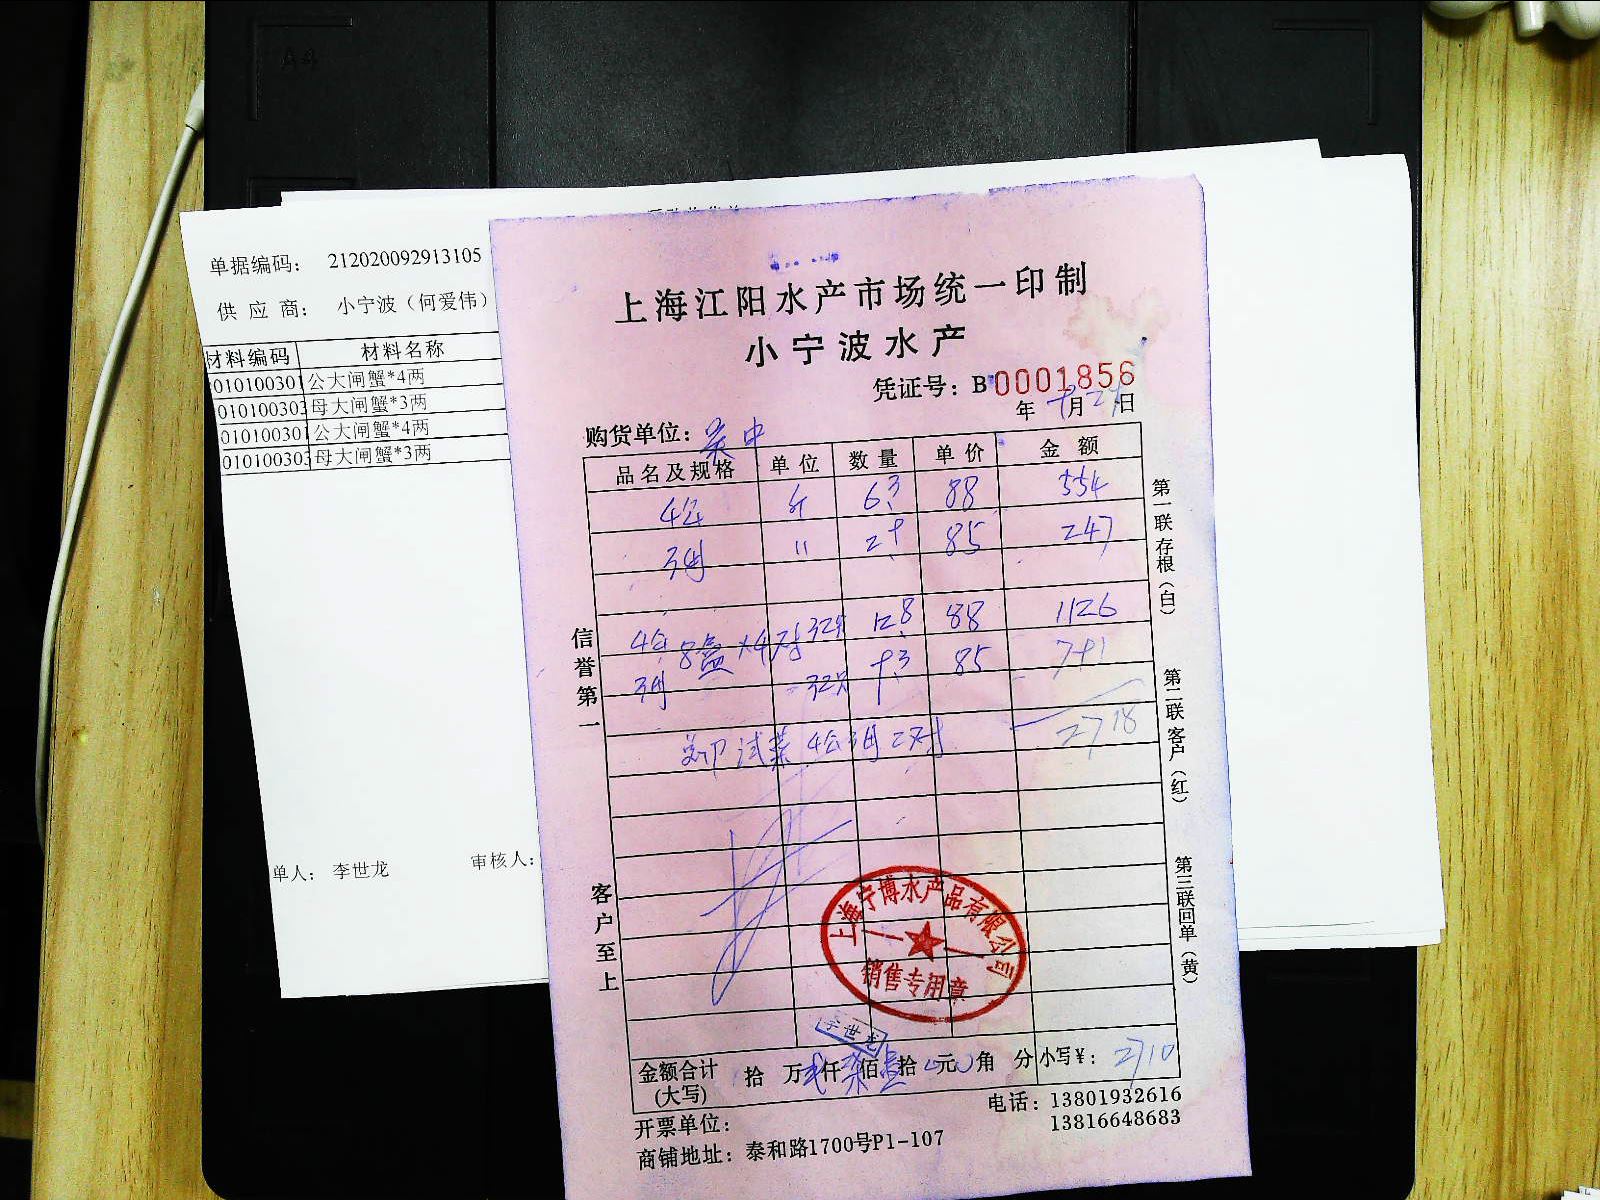 单据编码： 212020092913105
供 应 商： 小宁波（何爱伟）
材料编码 材料名称
010100301 公大闸蟹*4两
010100303 母大闸蟹*3两
010100301 公大闸蟹*4两
010100303 母大闸蟹*3两
单人： 李世龙 审核人：
上海江阳水产市场统一印制
小宁波水产
凭证号：B 0001856
年 月 日
购货单位：
品名及规格 单位 数量 单价 金额
4公 斤 6.3 88 554
3母 〃 85 247
4公 8盒×4对 32只 12.8 88 1126
3母 32只 85
试菜 4公3母 2对 2718
信誉第一
客户至上
第一联存根（白）
第二联客户（红）
第三联回单（黄）
上海宁博水产品有限公司
销售专用章
李世龙
金额合计(大写) 拾 万 仟 佰 拾 元 角 分 小写¥： 2710
开票单位：
电话：13801932616
13816648683
商铺地址：泰和路1700号P1-107